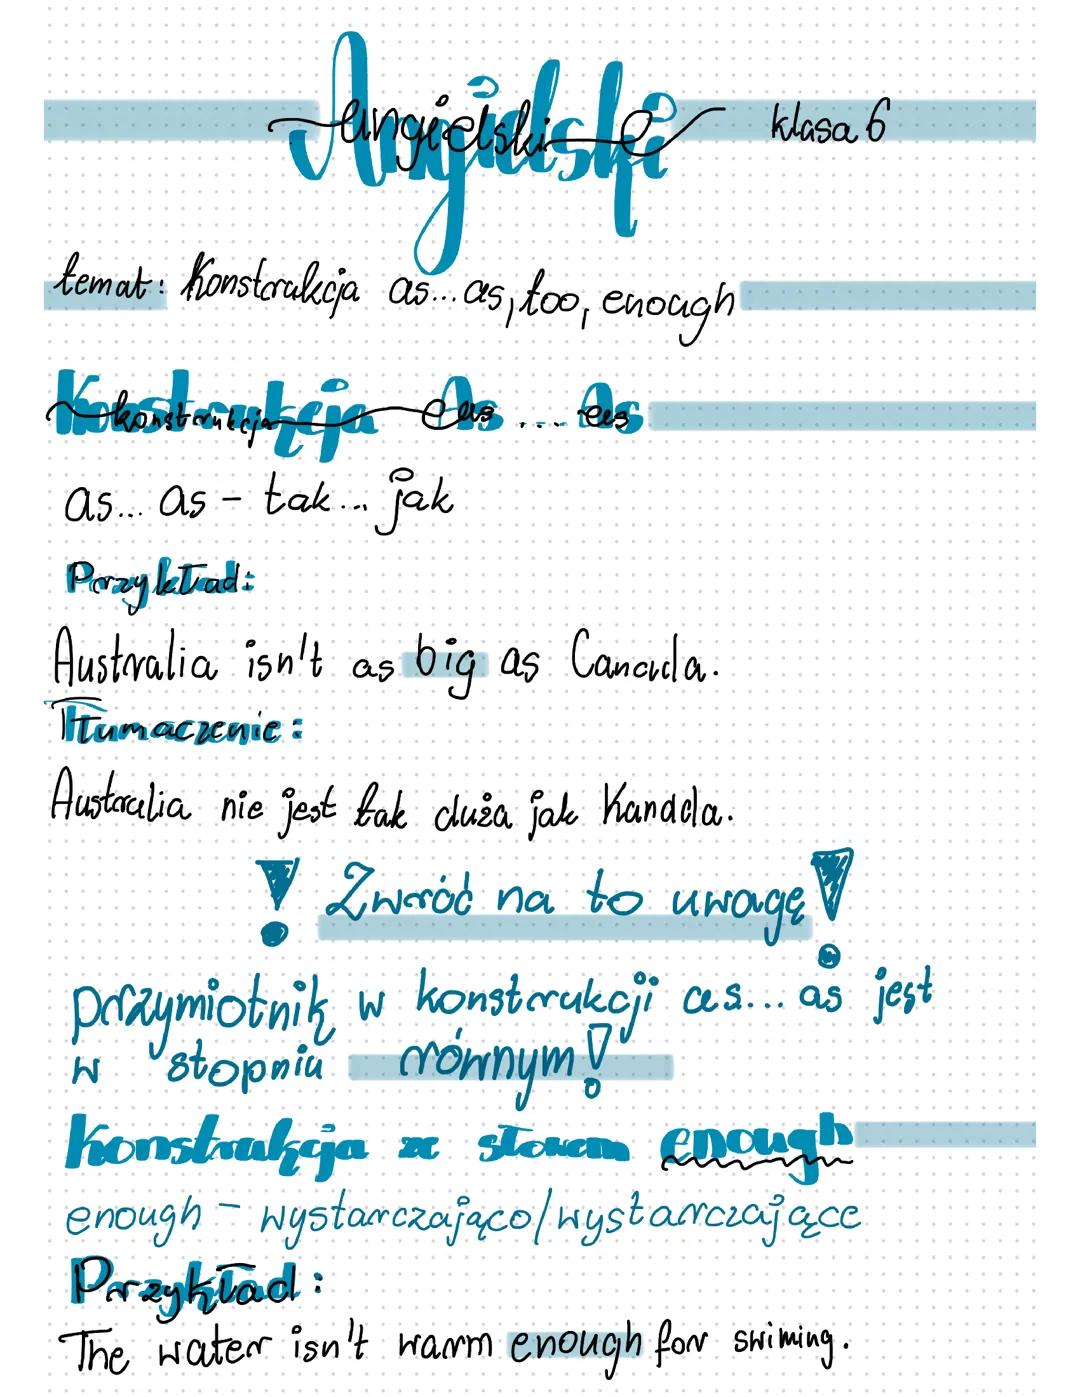 Angielski klasa 6
temat: Konstrukcja as... as, too, enough
Konstrukcja As ... As
as... as - tak... jak
Przykład:
Australia isn't as big as Canada.
Tłumaczenie:
Australia nie jest tak duża jak Kanada.
! Zwróć na to uwagę !
przymiotnik w konstrukcji as... as jest
w stopniu równym!
Konstrukcja ze słowem enough
enough - wystarczająco/wystarczające
Przykład:
The water isn't warm enough for swiming.